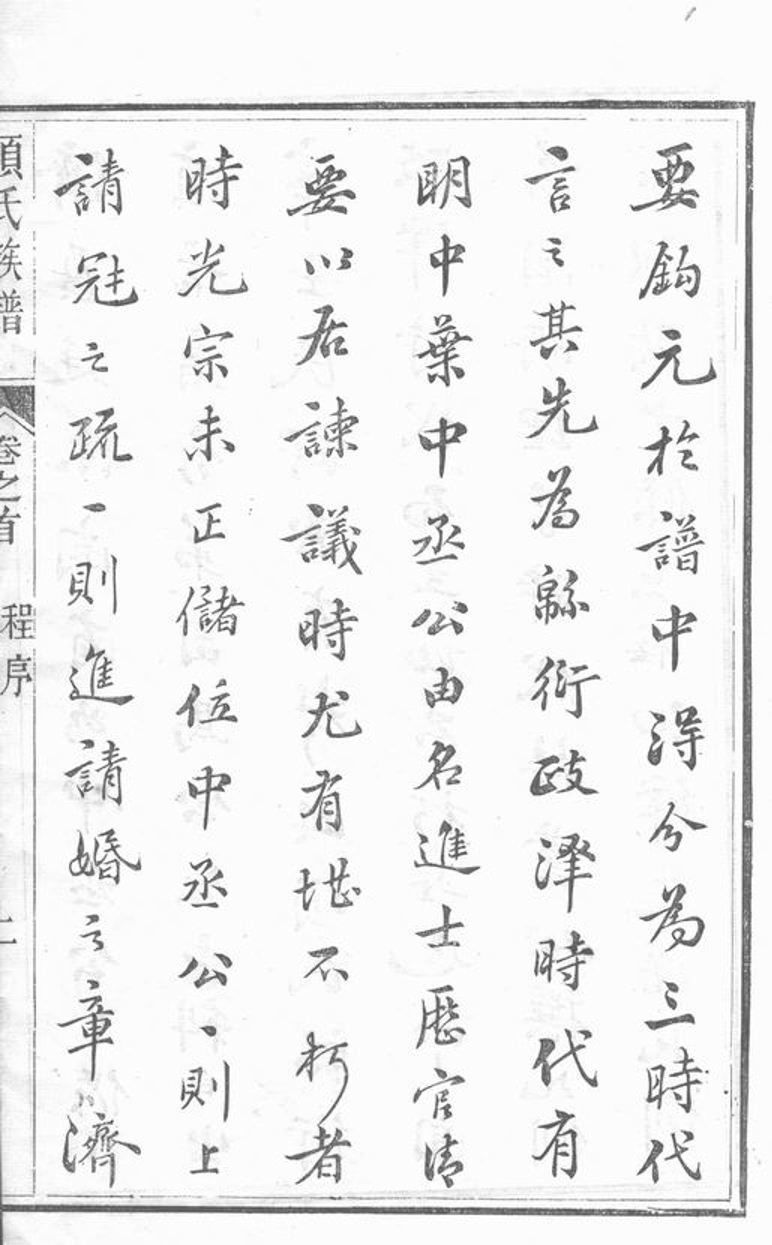 要鈎元於譜中得分為三時代
言之其先為緜衍政澤時代有
明中葉中丞公由名進士歷官清
要以居諫議時尤有堪不朽者
時光宗未正儲位中丞公一則上
請冠之疏一則進請婚之章濟
項氏族譜 卷之首 程序